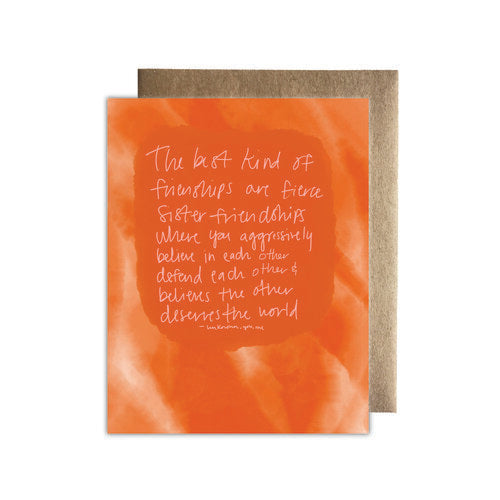 The best kind of
frienships are fierce
sister friendships
where you aggressively
believe in each other
defend each other &
believes the other
deserves the world